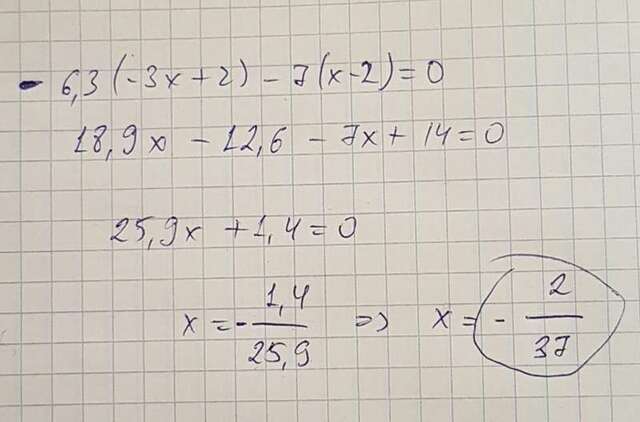 - 6,3 (-3x + 2) - 7(x-2) = 0
18,9x - 12,6 - 7x + 14 = 0
25,9x + 1,4 = 0
x = - 1,4/25,9 => x = - 2/37